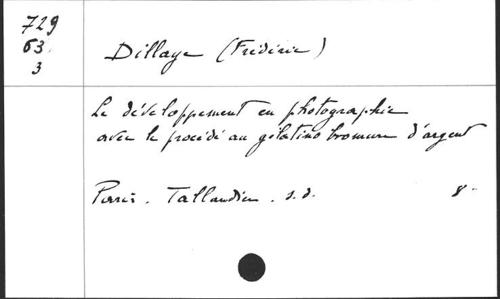 729
63
3
Dillaye (Frédéric)
Le développement en photographie
avec le procédé au gélatino bromure d'argent
Paris. Tallandier. s.d. 8°